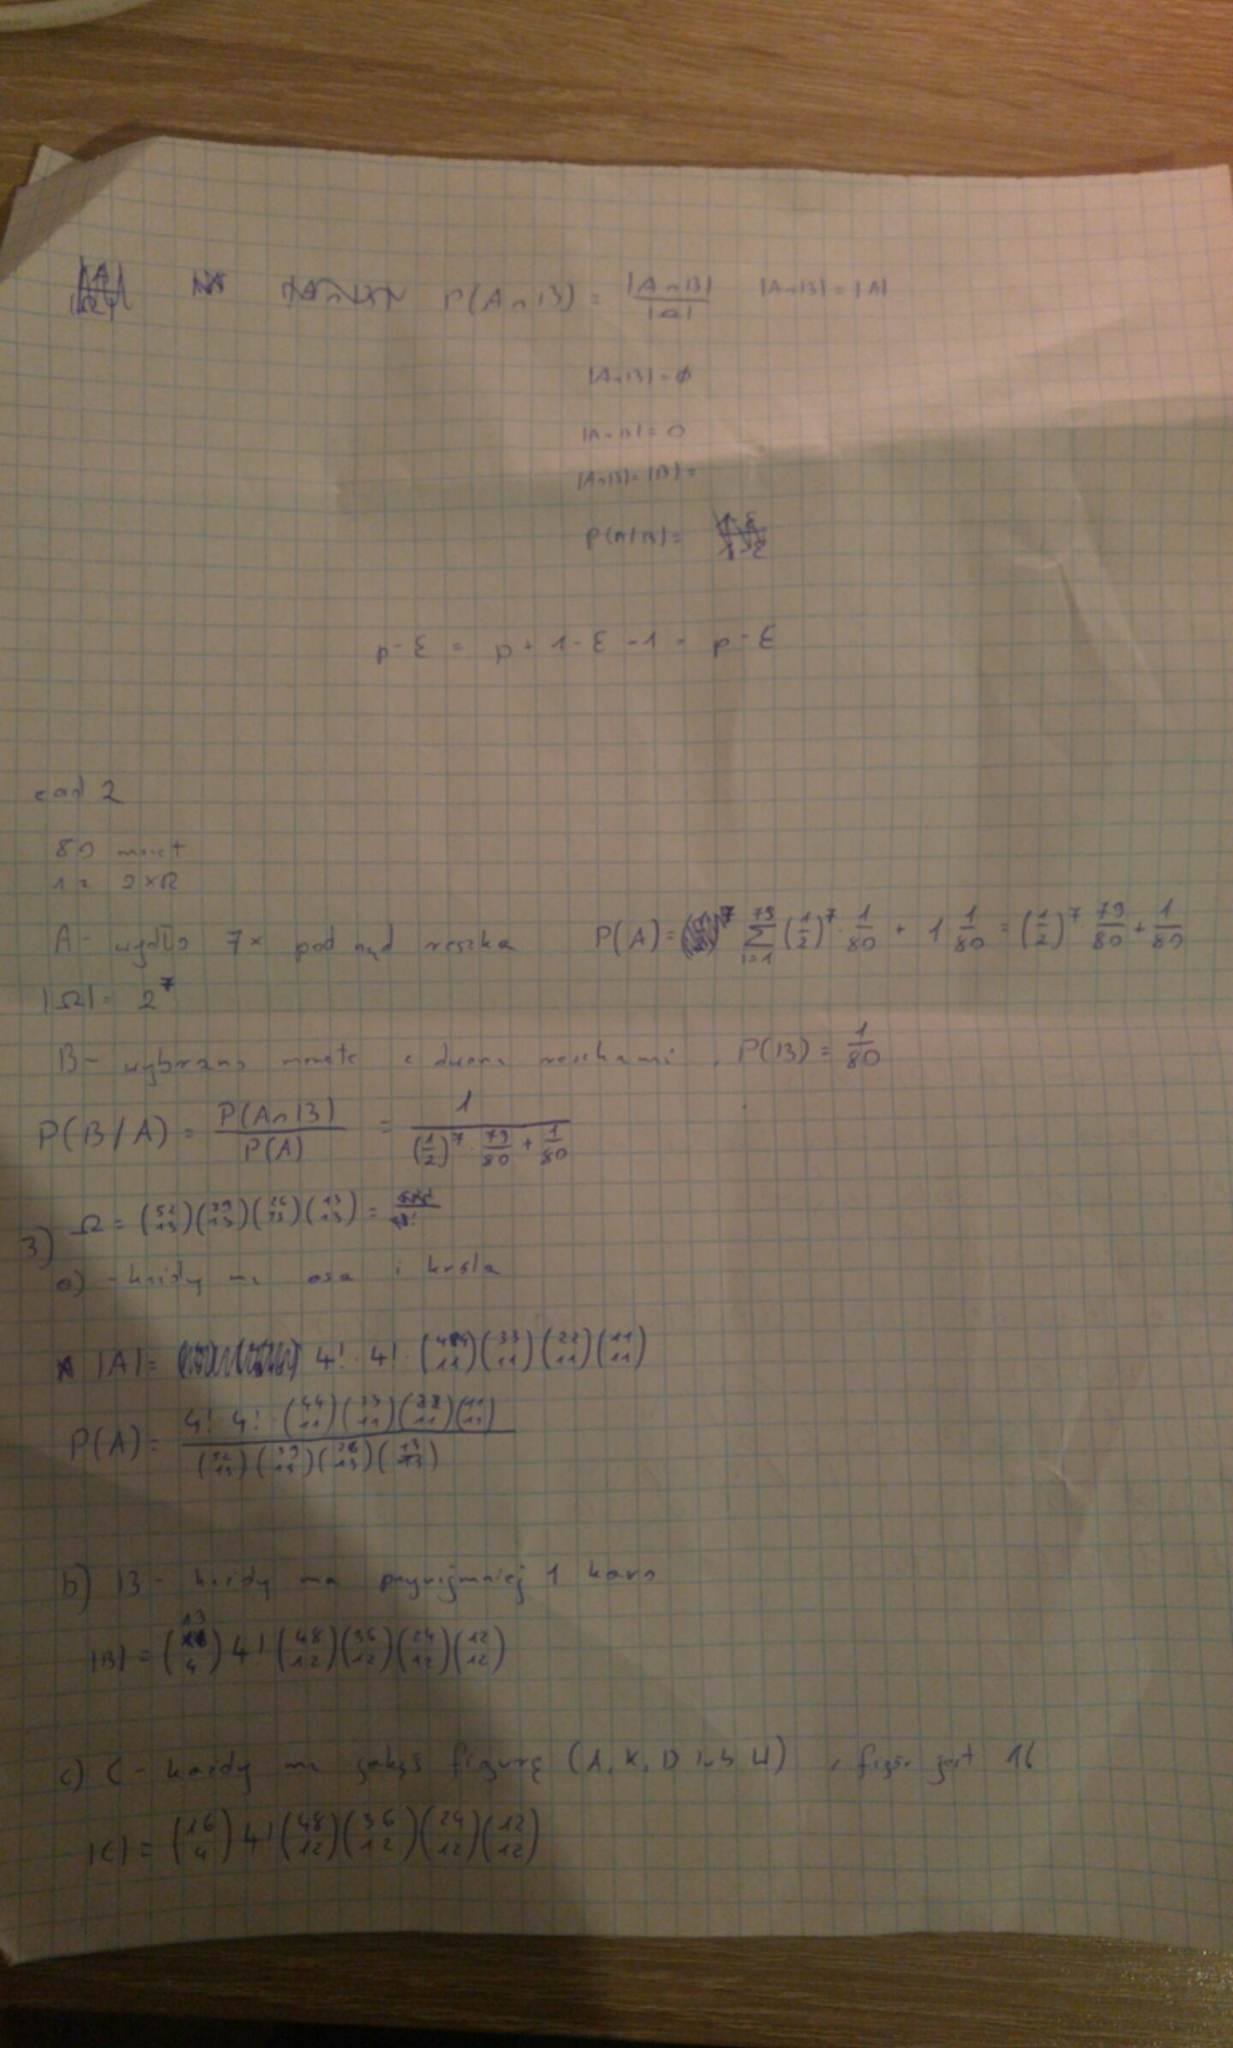 P(A∩B) = |A∩B| / |Ω|    |A∩B| = |A|
|A∩B| = ∅
|A∩B| = 0
|A∩B| = |B| =
P(A/B) =
p - ε = p + 1 - ε - 1 = p - ε
zad 2
80 monet
1 z 2×R
A - wydło 7× pod rząd reszka    P(A) = ∑_{i=1}^{79} (1/2)^7 · 1/80 + 1 1/80 = (1/2)^7 · 79/80 + 1/80
|Ω| = 2^7
B - wybrano monetę z dwoma reszkami, P(B) = 1/80
P(B/A) = P(A∩B) / P(A) = 1 / ((1/2)^7 · 79/80 + 1/80)
3) Ω = (52 13)(39 13)(26 13)(13 13) =
a) - każdy ma asa i króla
|A| = 4! · 4! · (44 11)(33 11)(22 11)(11 11)
P(A) = 4! 4! · (44 11)(33 11)(22 11)(11 11) / (52 13)(39 13)(26 13)(13 13)
b) B - każdy ma przynajmniej 1 karo
|B| = (13 4) 4! (48 12)(36 12)(24 12)(12 12)
c) C - każdy ma jakąś figurę (A, K, D lub W), figur jest 16
|C| = (16 4) 4! (48 12)(36 12)(24 12)(12 12)